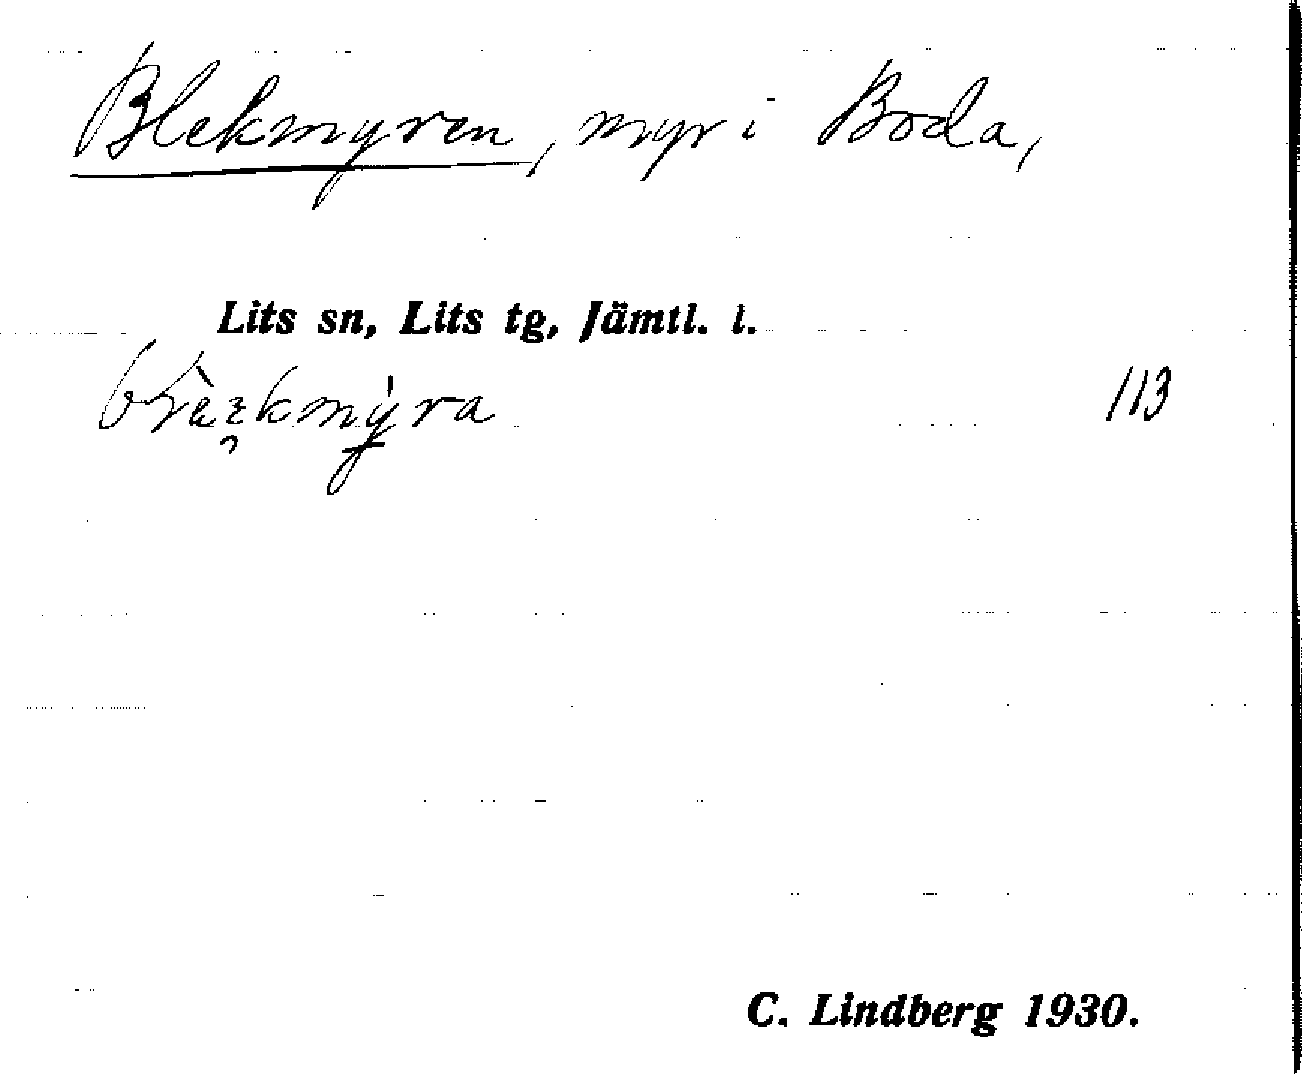 Blekmyren, myr i Boda,
Lits sn, Lits tg, Jämtl. l.
113
C. Lindberg 1930.